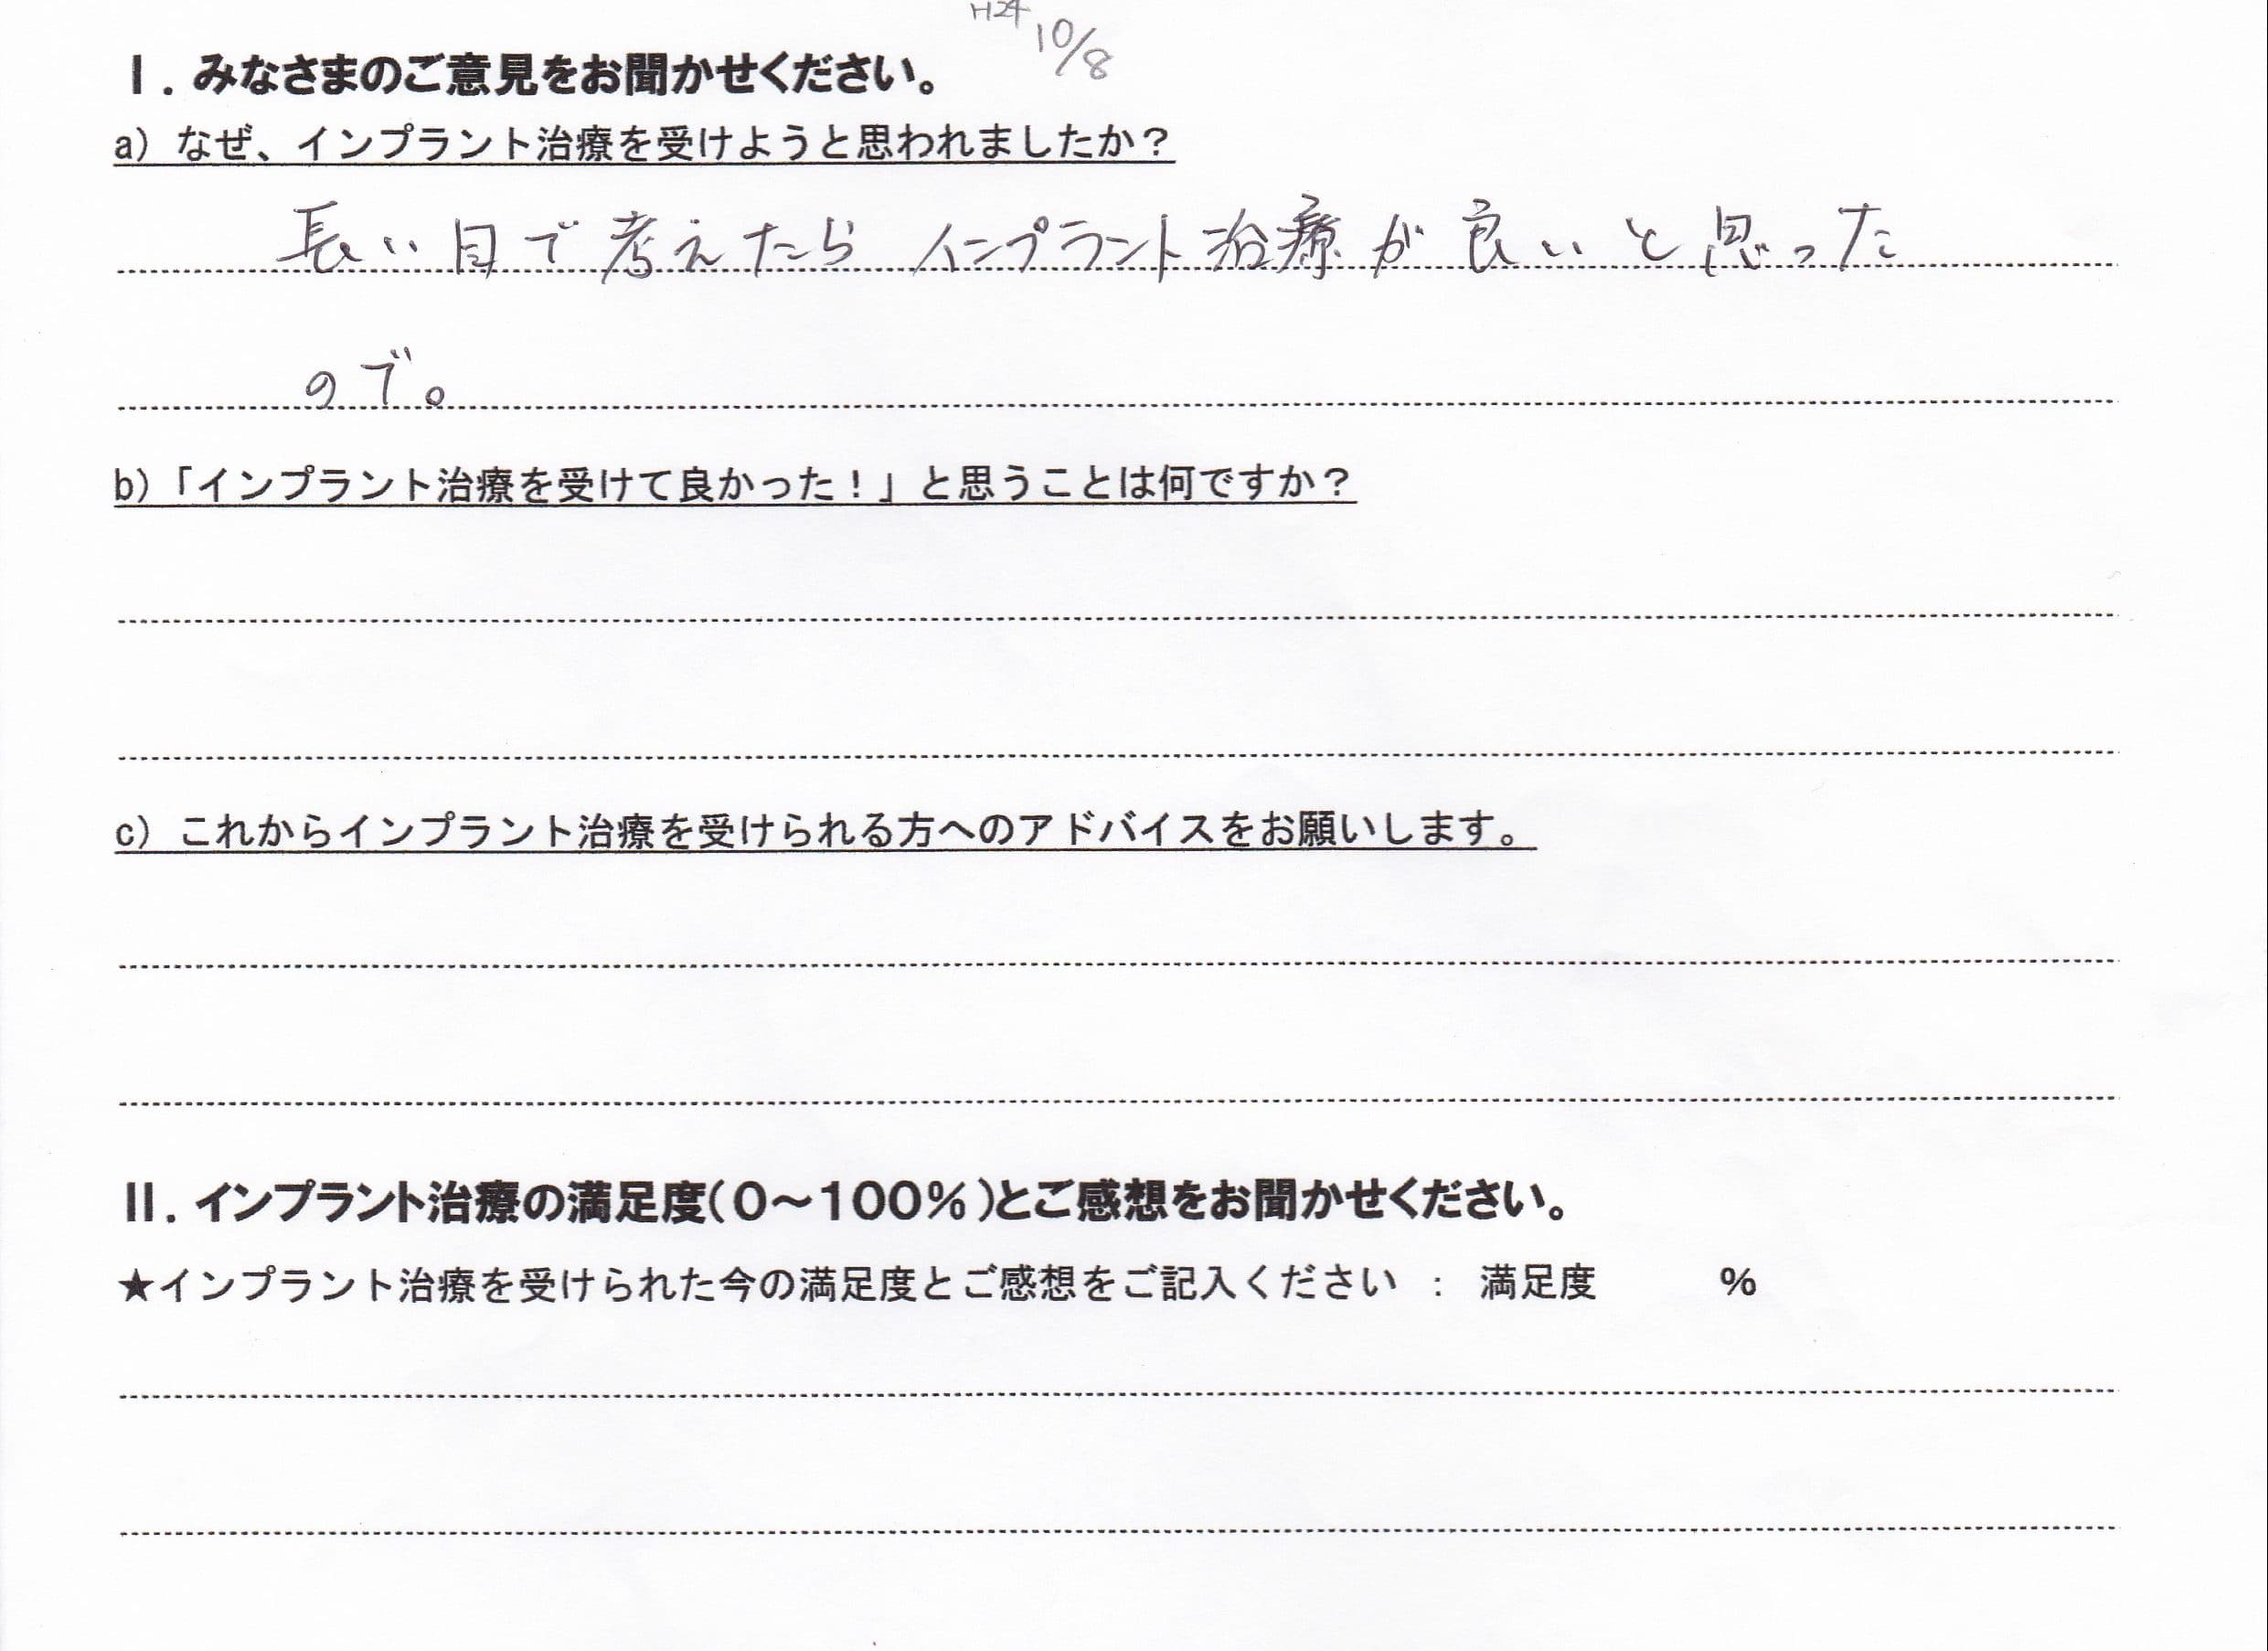 H24 10/8
Ⅰ. みなさまのご意見をお聞かせください。
a) なぜ、インプラント治療を受けようと思われましたか？
長い目で考えたら インプラント治療が良いと思った
ので。
b)「インプラント治療を受けて良かった！」と思うことは何ですか？
c) これからインプラント治療を受けられる方へのアドバイスをお願いします。
Ⅱ. インプラント治療の満足度(0～100％)とご感想をお聞かせください。
★インプラント治療を受けられた今の満足度とご感想をご記入ください ： 満足度 ％